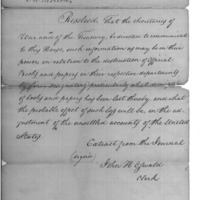 Resolved, That the Secretaries of
War and of the Treasury, be directed to communicate
to this House, such information as may be in their
power, in relation to the destruction of official
books and papers in their respective departments
by fires; designating particularly what
of books and papers has been lost thereby, and what
the probable effect of such loss will be, in the ad-
justment of the unsettled accounts of the United
States.
Extract from the Journal
(signed)
John H. Oswald
Clerk